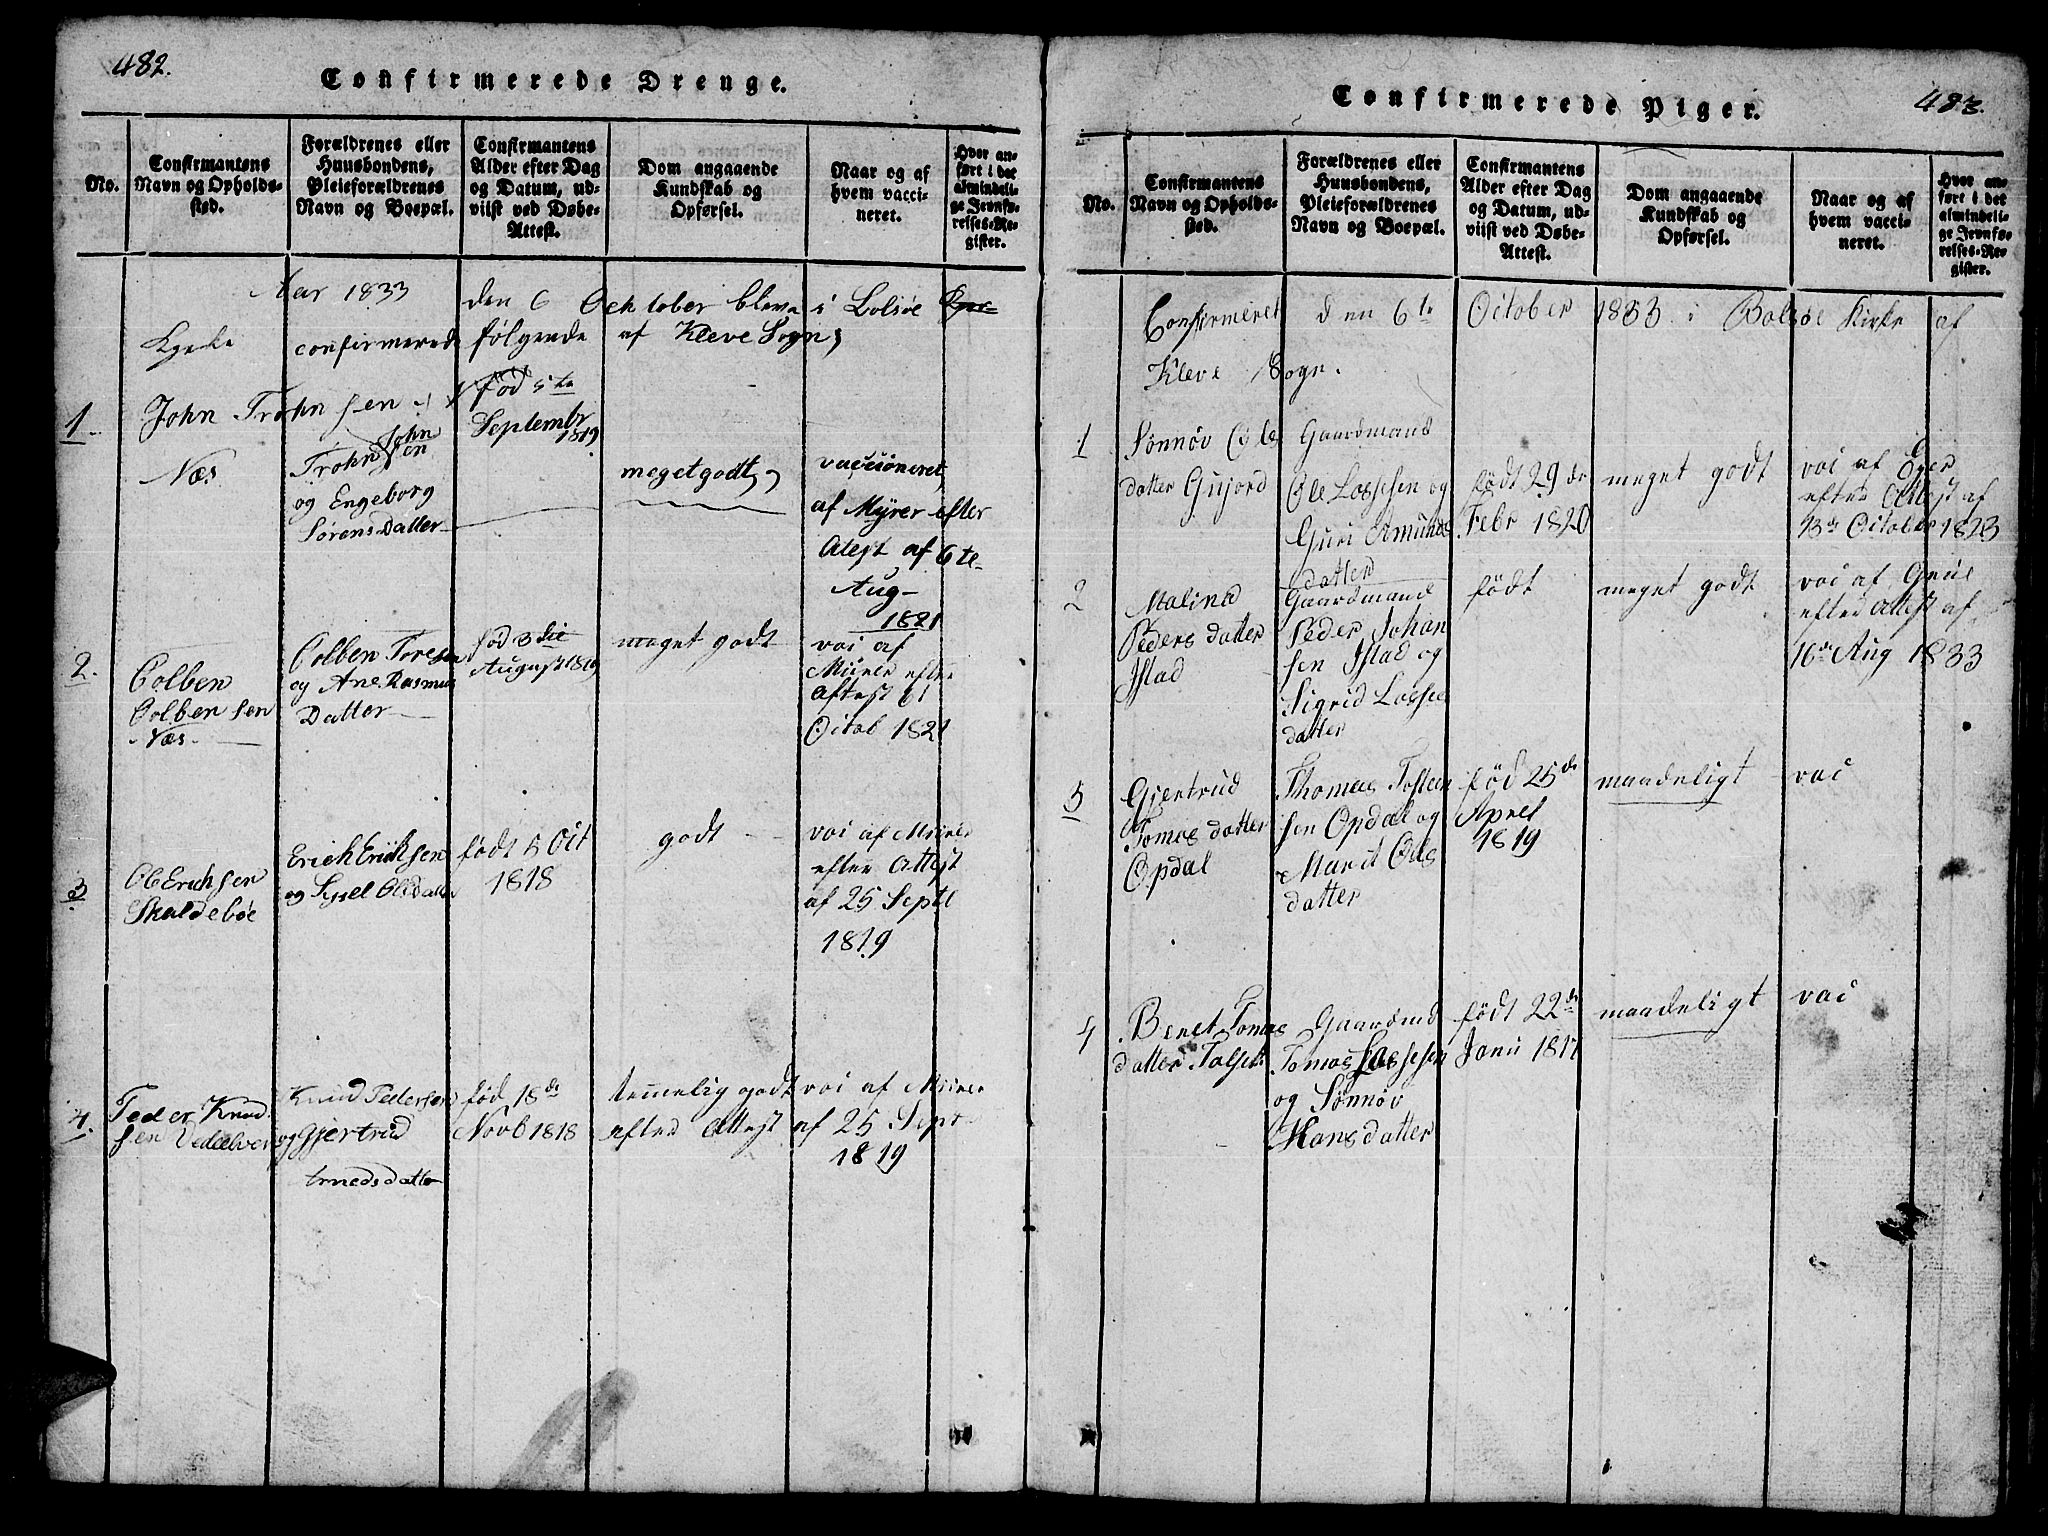 482.
Confirmerede Drenge.
No.
Confirmantens
Navn og Opholds-
sted.
Forældrenes eller
Huusbondens,
Pleieforældrenes
Navn og Boepæl.
Confirmantens
Alder efter Dag
og Datum, ud-
viist ved Døbe-
Attest.
Dom angaaende
Kundskab og
Opførsel.
Naar og af
hvem vacci-
neret.
Hvor an-
ført i det
almindeli-
ge Jevnfø-
relses-Re-
gister.
Aar 1833 den 6 Ocktober bleve i Bolsøe
confirmerede følgende af Kleve Sogn,
1.
John Trohnsen
Næs
Trohn John
sen
og Engeborg
Sørens Datter
fød 5te
Septembr
1819
meget godt,
vaccioneret
af Myrer efter
Atest af 6te
Aug
1821
2.
Colben
Colbensen
Næs
Colben Toresen
og Ane Rasmus
Datter
fød 3die
August 1819
meget godt
vac af
Miirer efter
Attest 61
Octob 1821
3
Ol Erichsen
Skaldebøe
Erich Erichsen
og Sysel Olsdatter
født 5 Oct
1818
godt
vac af Miirer
efter Attest
af 25 Septe
1819
4.
Peder Knud
sen
Knud Pedersen
og Gjertrud
datter
fød 18de
Novb 1818
temmelig godt
efter Attest
vac af Miirer
af 25 Sept
1819
483.
Confirmerede Piger.
No.
Confirmantens
Navn og Opholds-
sted.
Forældrenes eller
Huusbondens,
Pleieforældrenes
Navn og Boepæl.
Confirmantens
Alder efter Dag
og Datum, ud-
viist ved Døbe-
Attest.
Dom angaaende
Kundskab og
Opførsel.
Naar og af
hvem vacci-
neret.
Hvor an-
ført i det
almindeli-
ge Jevnfø-
relses-Re-
gister.
Confirmeret den 6te October 1833 i Bolsøe Kirke af
Kleve Sogn.
1
Sønnøv Ols
datter Gujord
Gaardmand
Ole Lassesen og
Guri Amunds
datter
født 29de
Febr 1820
meget godt
vac af Eger
efter Attest af
13de October 1823
2
Malina
Peders datter
Istad
Gaardmand
Peder Johan
sen Istad og
Sigrid Lasse
datter
født
meget godt
vac af
efter Attest af
16de Aug 1833
3
Gjertrud
Tomas datter
Opdal
Thomas Tosten
sen Opdal og
Marit Ols
datter
fød 25de
Aprel
1819
maadeligt
vac
4
Beret Tomas
datter
Gaardmd
Tomas Lassesen
og Sønnøv
Hansdatter
født 22de
Janu 1817
maadeligt
vac